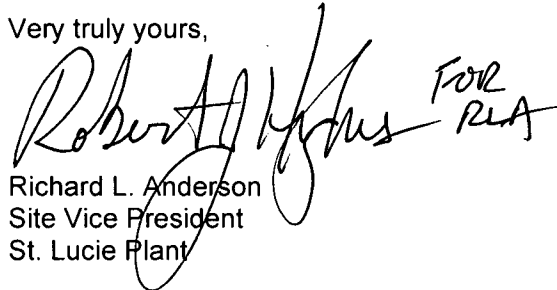 Very truly yours,
Robert J Hughes FOR
RLA
Richard L. Anderson
Site Vice President
St. Lucie Plant